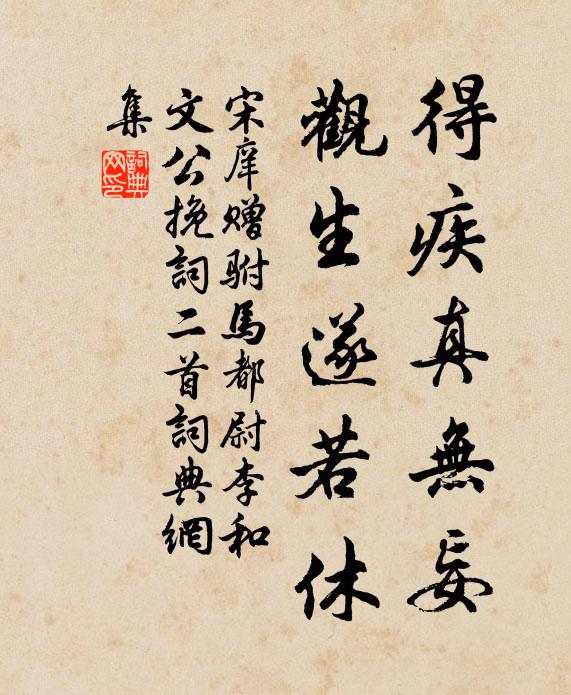 得疾真無妄
觀生遂若休
宋庠贈駙馬都尉李和
文公挽詞二首詞典網
集
詞典
网印